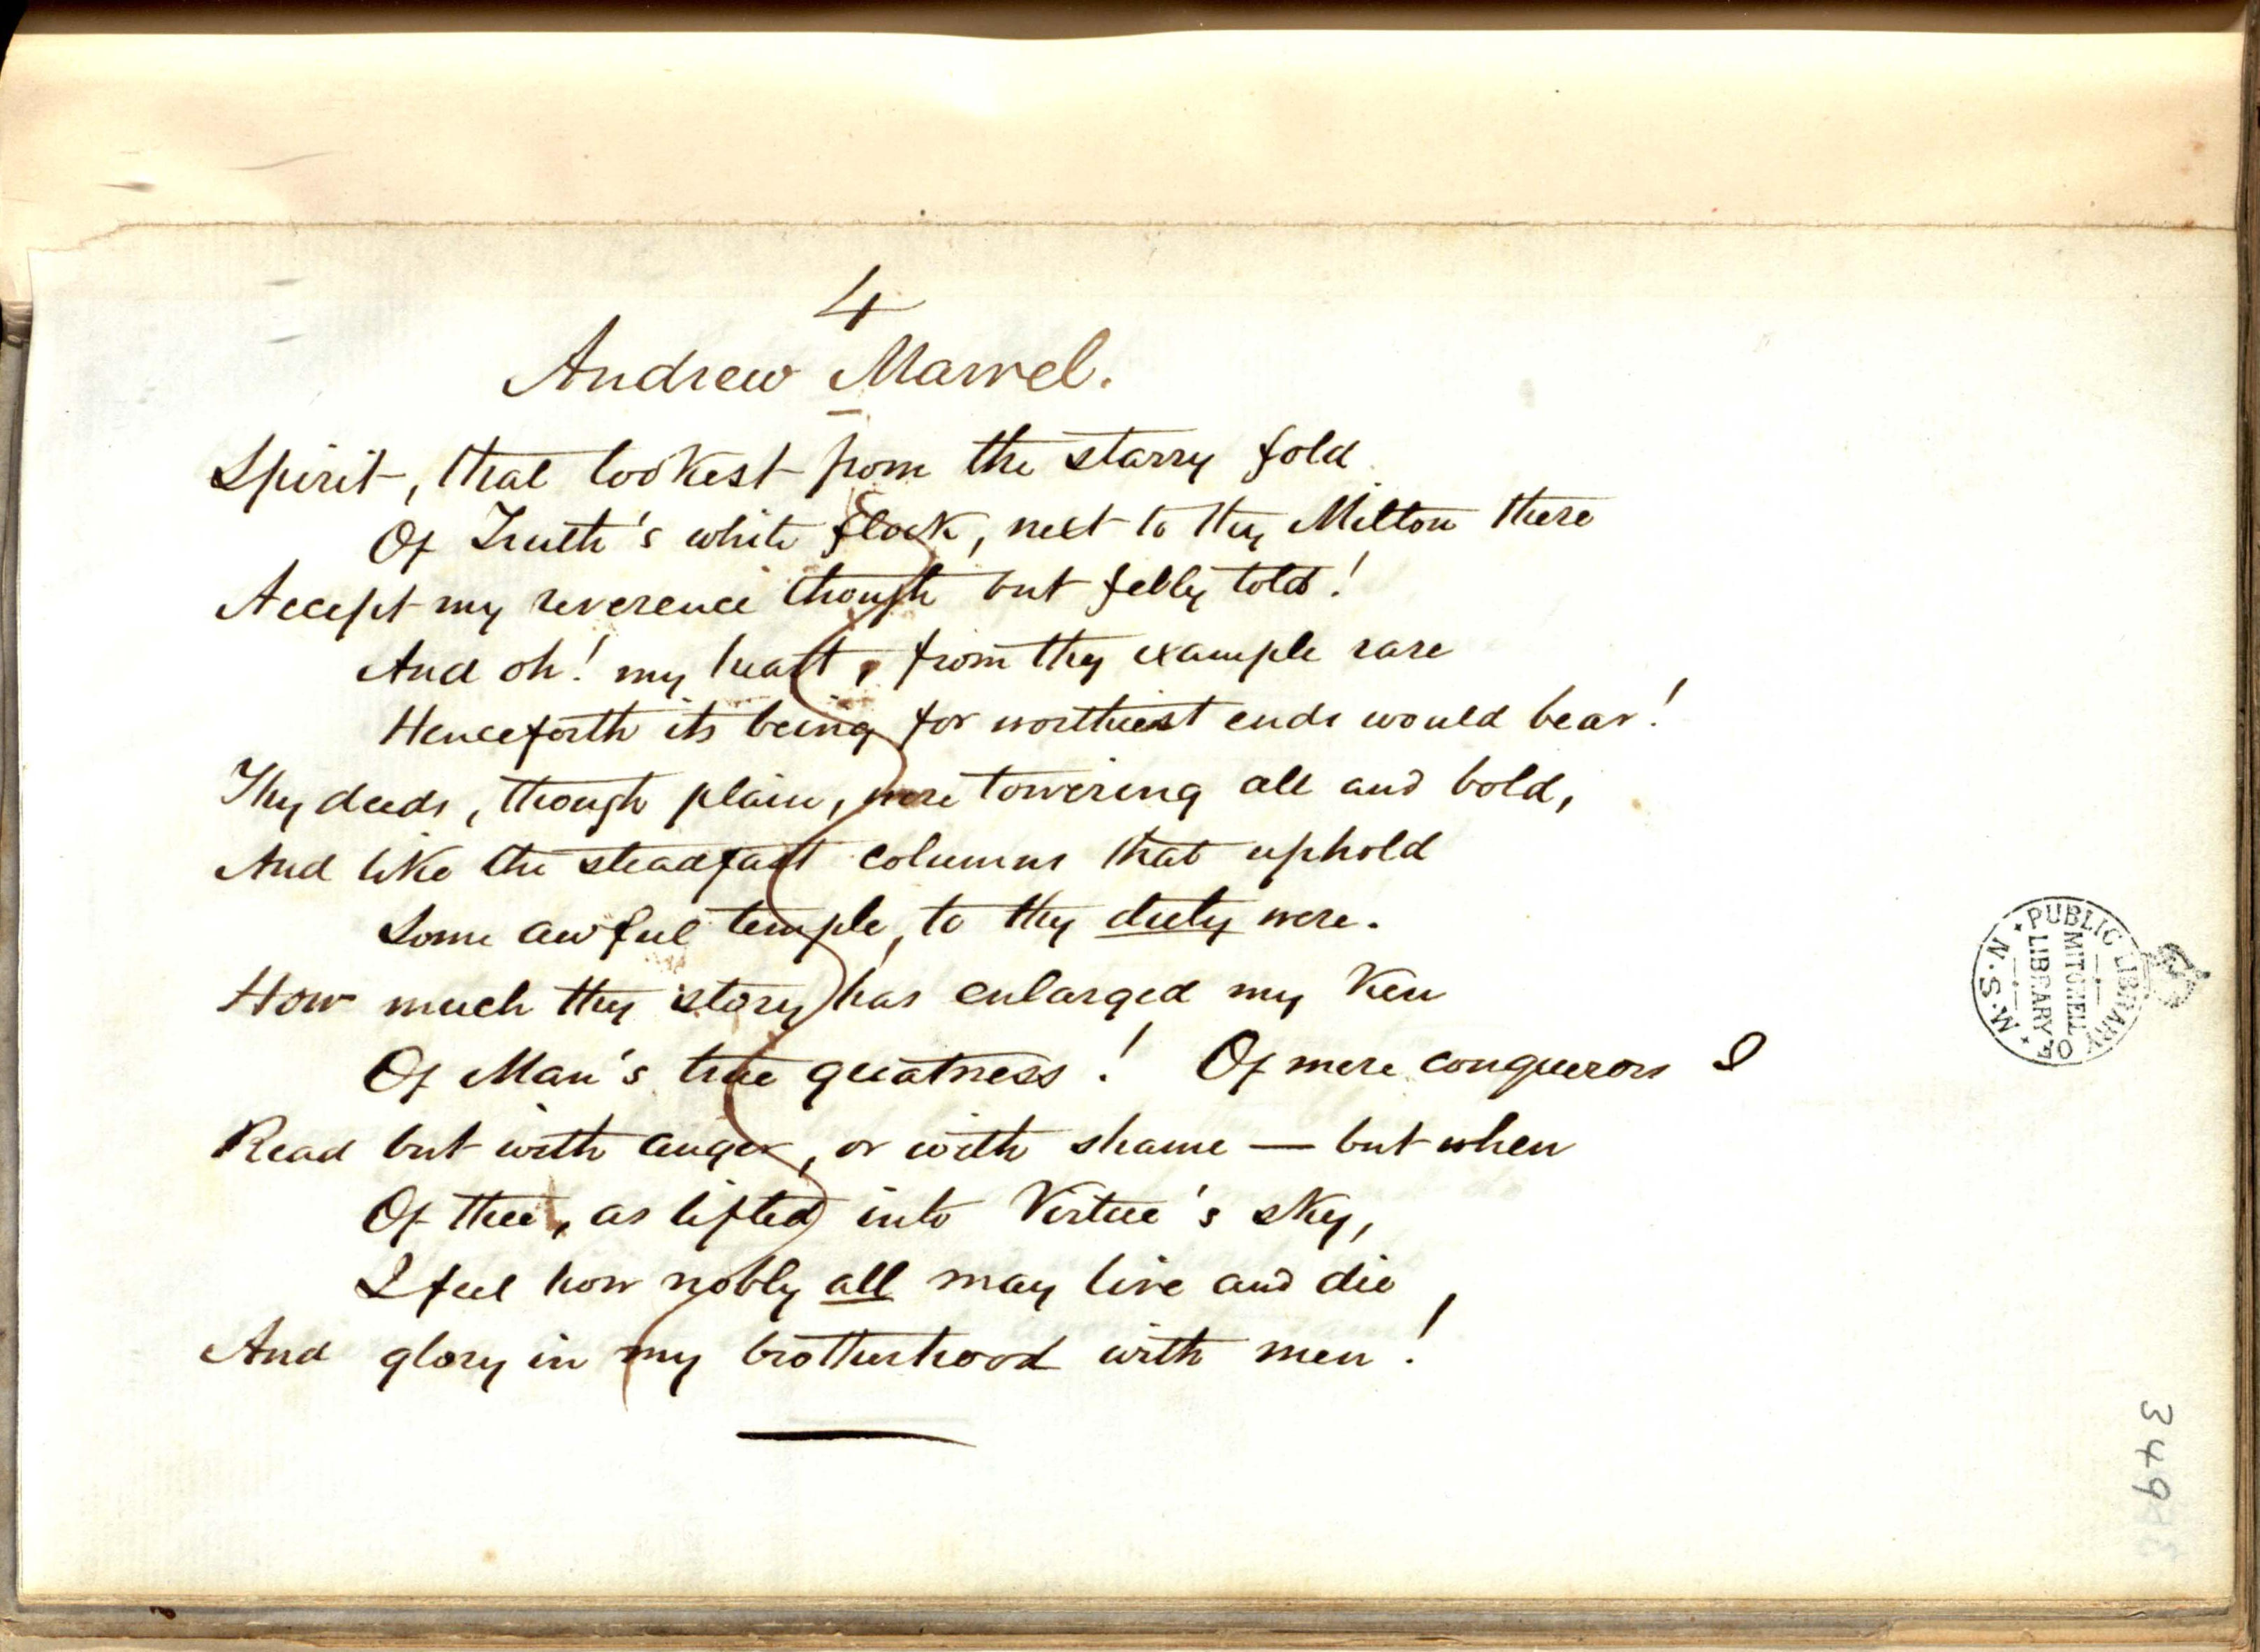 4
Andrew Marvel.
Spirit, that lookest from the starry fold
Of Truth's white flock, next to thy Milton there
Accept my reverence though but felbly told!
And oh! my heart, from thy example rare
Henceforth its being for worthiest ends would bear!
Thy deeds, though plain, were towering all and bold,
And like the steadfast columns that uphold
Some awful temple, to thy duty were.
How much thy story has enlarged my Ken
Of Man's true greatness! Of mere conquerors I
Read but with anger, or with shame — but when
Of thee, as lifted into Virtue's sky,
I feel how nobly all may live and die,
And glory in my brotherhood with men!
PUBLIC LIBRARY OF N.S.W.
MITCHELL
LIBRARY
349